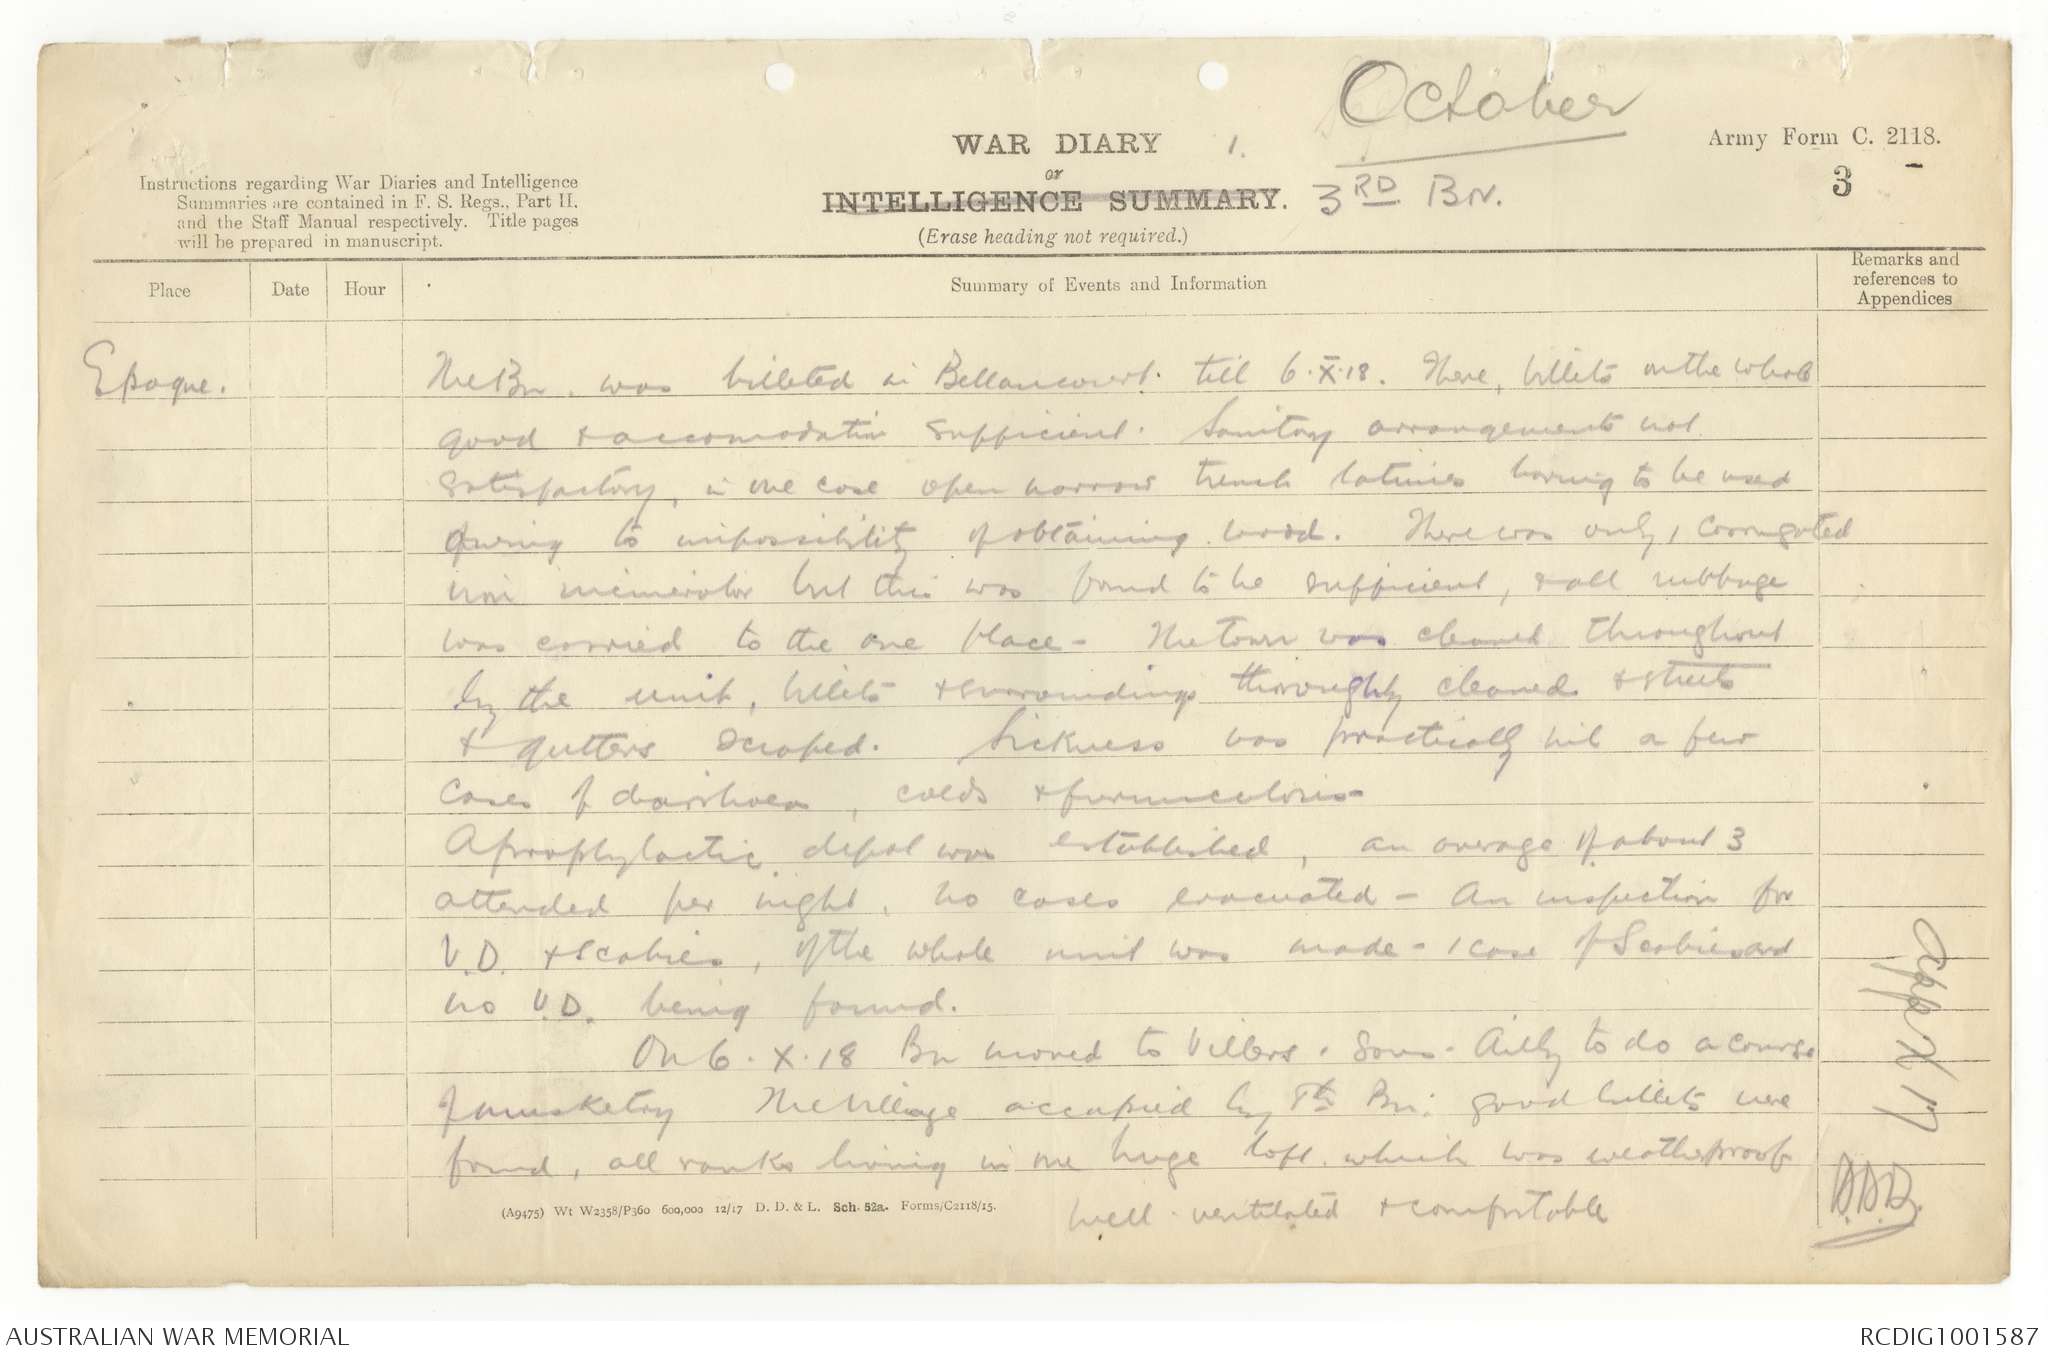 October
WAR DIARY 1.
or
INTELLIGENCE SUMMARY. 3RD BN.
(Erase heading not required.)
Army Form C. 2118.
3
Instructions regarding War Diaries and Intelligence
Summaries are contained in F. S. Regs., Part II.
and the Staff Manual respectively. Title pages
will be prepared in manuscript.
Place Date Hour Summary of Events and Information Remarks and
references to
Appendices
Epagne. The Bn. was billeted in Bellancourt. till 6.X.18. There, billets on the whole
good & accomodation sufficient. Sanitary arrangements not
satisfactory, in one case open narrow trench latrines having to be used
owing to impossibility of obtaining wood. There was only 1 corrugated
iron incinerator but this was found to be sufficient, & all rubbage
was carried to the one place - The town was cleaned throughout
by the unit, billets & surroundings thoroughly cleaned & streets
& gutters scraped. Sickness was practically nil a few
cases of diarrhoea, colds & furunculosis
A prophylactic depot was established, an average of about 3
attended per night, no cases evacuated - An inspection for
V.D. & scabies, of the whole unit was made - 1 case of Scabies and
no V.D. being found.
On 6.X.18 Bn moved to Villers. Sous. Ailly to do a course
of musketry The village occupied by 7th Bn; good billets were
found, all ranks living in one huge loft which was weatherproof
well ventilated & comfortable
Appx 17
(A9475) Wt W2358/P360 600,000 12/17 D. D. & L. Sch. 52a. Forms/C2118/15.
AUSTRALIAN WAR MEMORIAL
RCDIG1001587